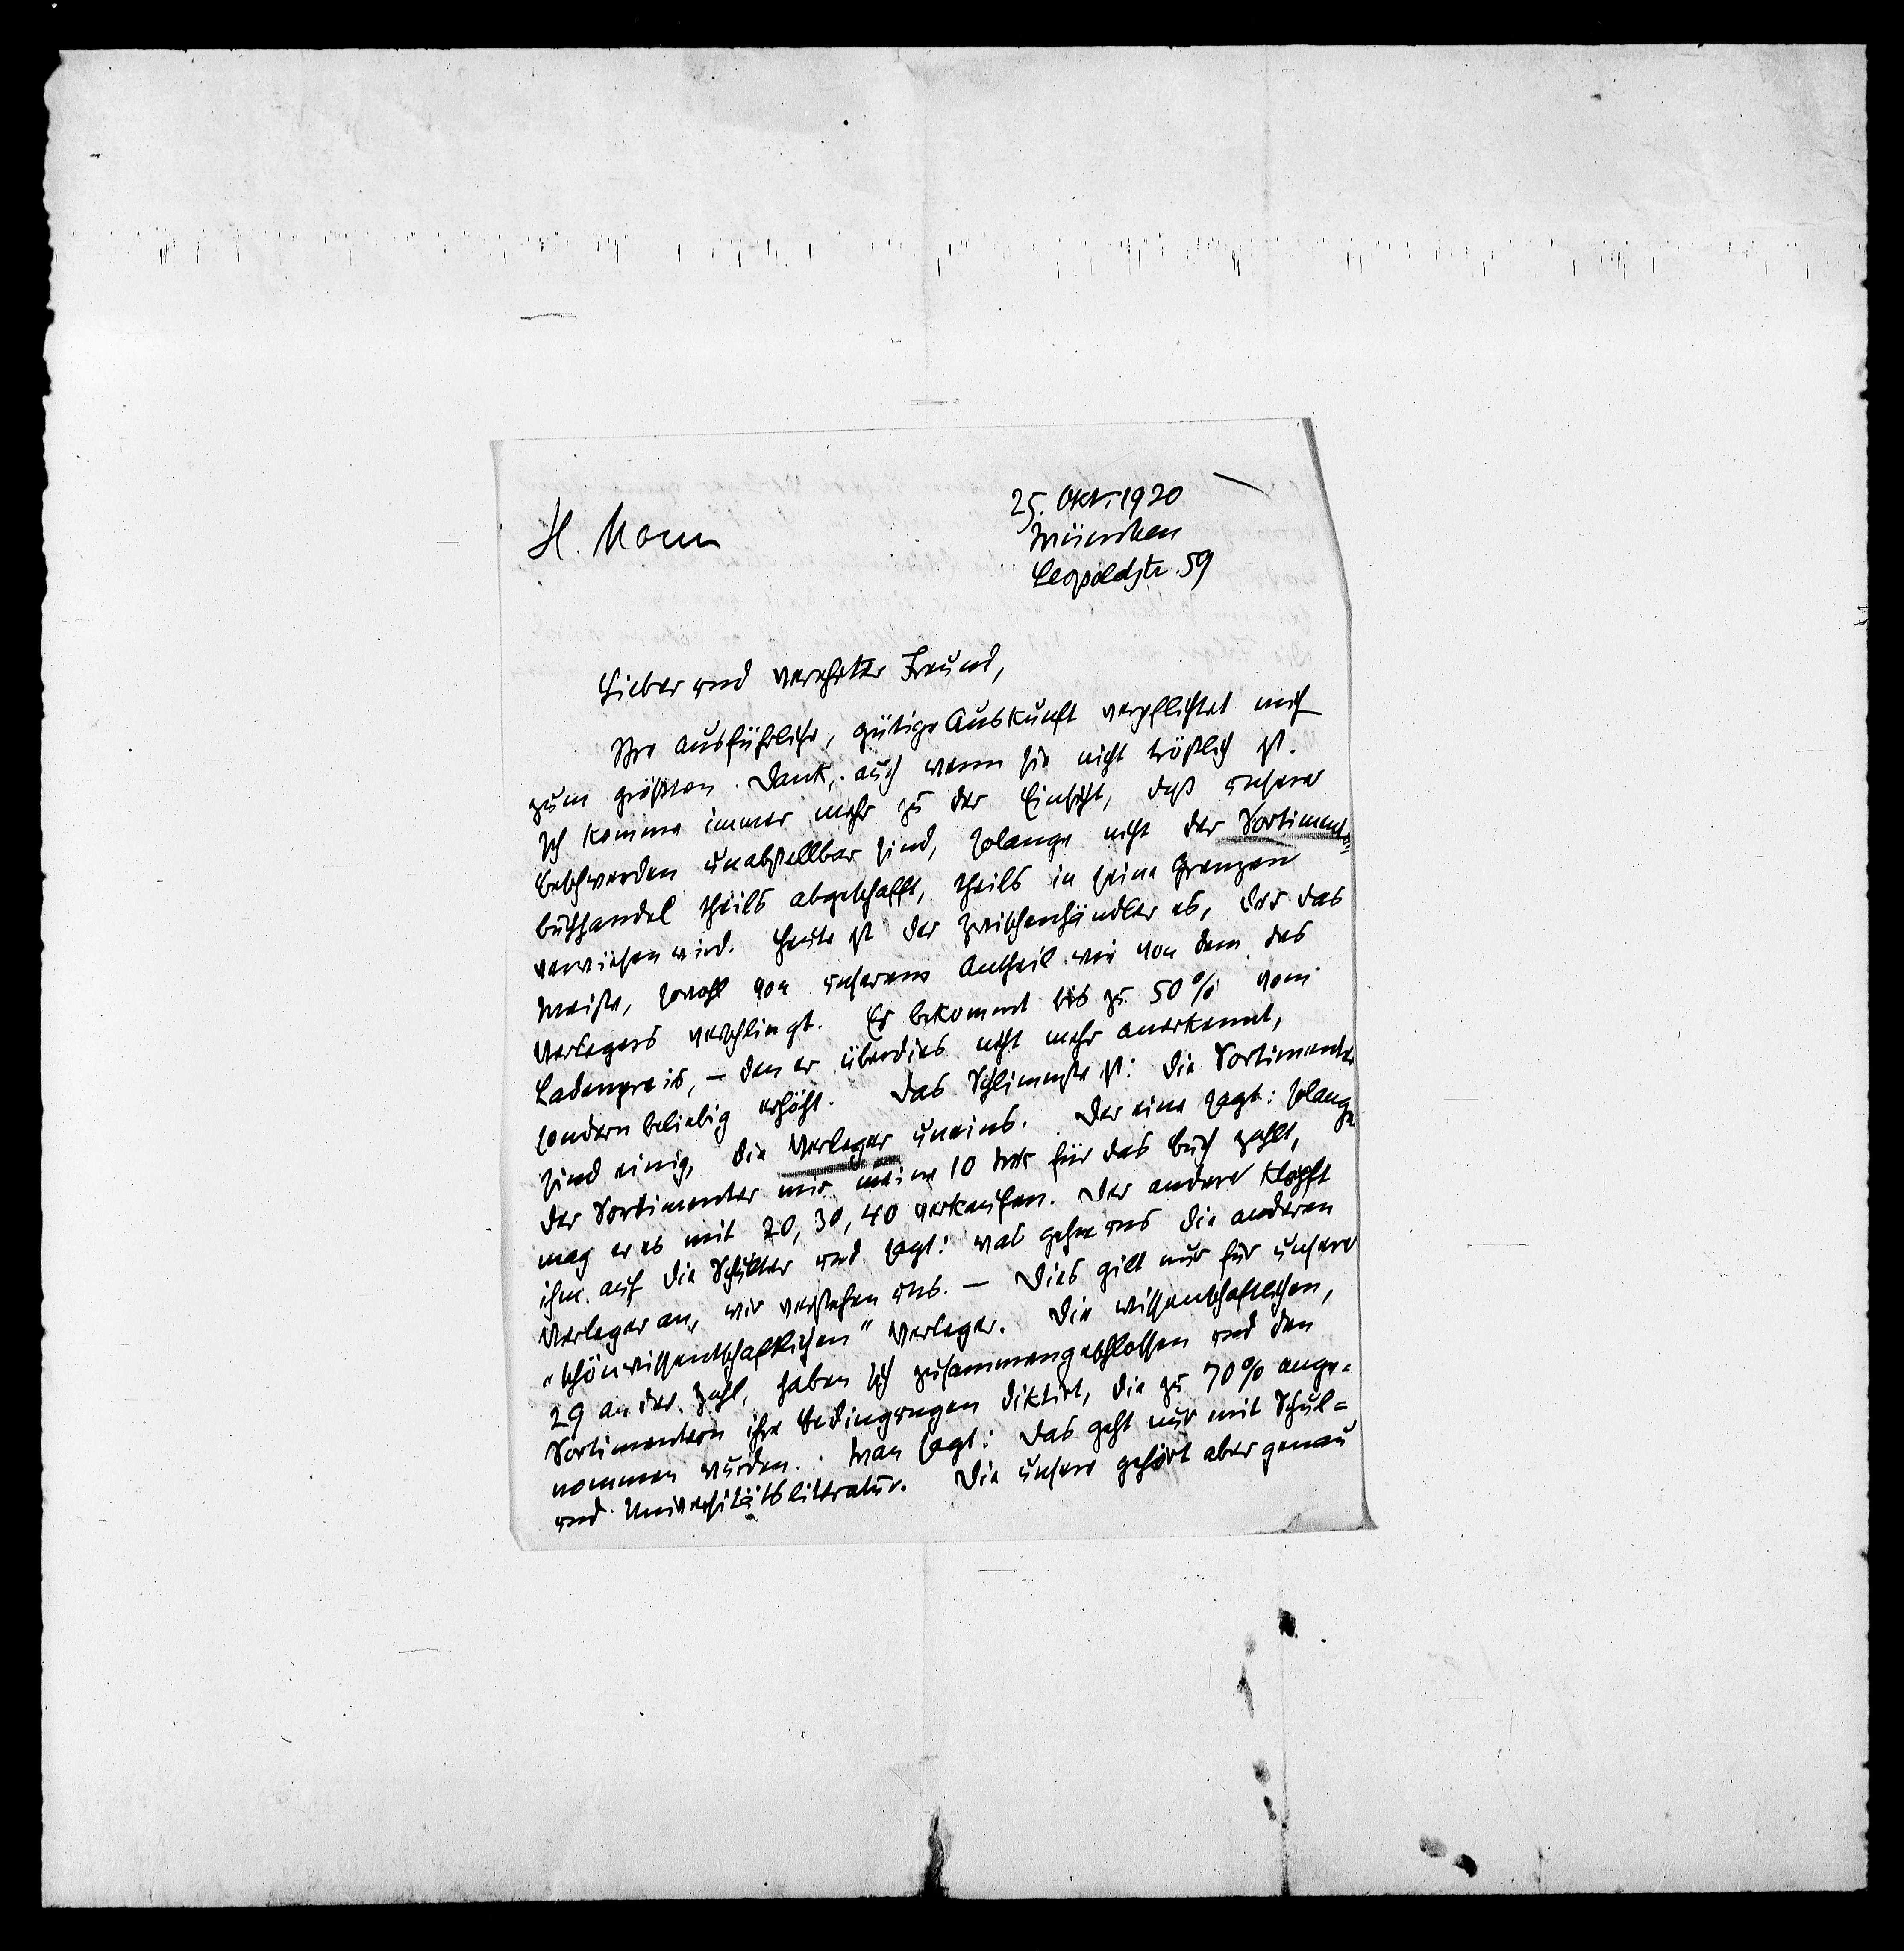 H. Mann
25. Okt. 1920
München
Leopoldstr. 59
Lieber und verehrter Freund,
Ihre ausführliche, gütige Auskunft verpflichtet mich
zum größten Dank, auch wenn sie nicht tröstlich ist.
Ich komme immer mehr zu der Einsicht, daß unsere
Beschwerden unabstellbar sind, solange nicht der Sortiments-
buchhandel theils abgeschafft, theils in seine Grenzen
verwiesen wird. Heute ist der Zwischenhändler es, der das
Meiste, sowohl von unserem Antheil wie von dem des
Verlegers verschlingt. Er bekommt bis zu 50% vom
Ladenpreis, – den er überdies nicht mehr anerkennt,
sondern beliebig erhöht. Das Schlimmste ist: die Sortimenter
sind einig, die Verleger uneins. Der eine sagt: solange
der Sortimenter mir meine 10 Mk für das Buch zahlt,
mag er es mit 20, 30, 40 verkaufen. Der andere klopft
ihm auf die Schulter und sagt: was gehn uns die anderen
Verleger an, wir verstehen uns. – Dies gilt nur für unsere
"schönwissenschaftlichen" Verleger. Die wissenschaftlichen,
29 an der Zahl, haben sich zusammengeschlossen und den
Sortimentern ihre Bedingungen diktirt, die zu 70% ange-
nommen wurden. Man sagt: das geht nur mit Schul-
und Universitätslitteratur. Die unsere gehört aber genau